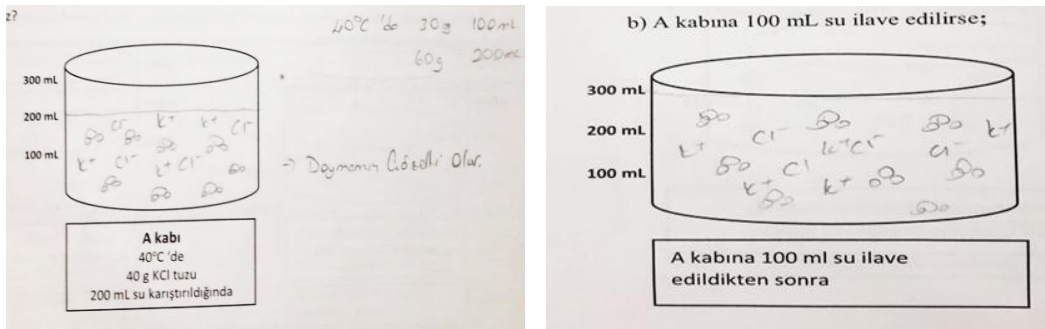 z?
40°C 'de 30g 100mL
60g 200mL
300 mL
200 mL
100 mL
Cl⁻ K+ K+ Cl⁻
K+ Cl⁻ K+ Cl⁻
→ Doymamış Çözelti Olur.
A kabı
40°C 'de
40 g KCl tuzu
200 mL su karıştırıldığında
b) A kabına 100 mL su ilave edilirse;
300 mL
200 mL
100 mL
K+ Cl⁻ K+Cl⁻ Cl⁻ K+
K+ Cl K+
A kabına 100 ml su ilave
edildikten sonra